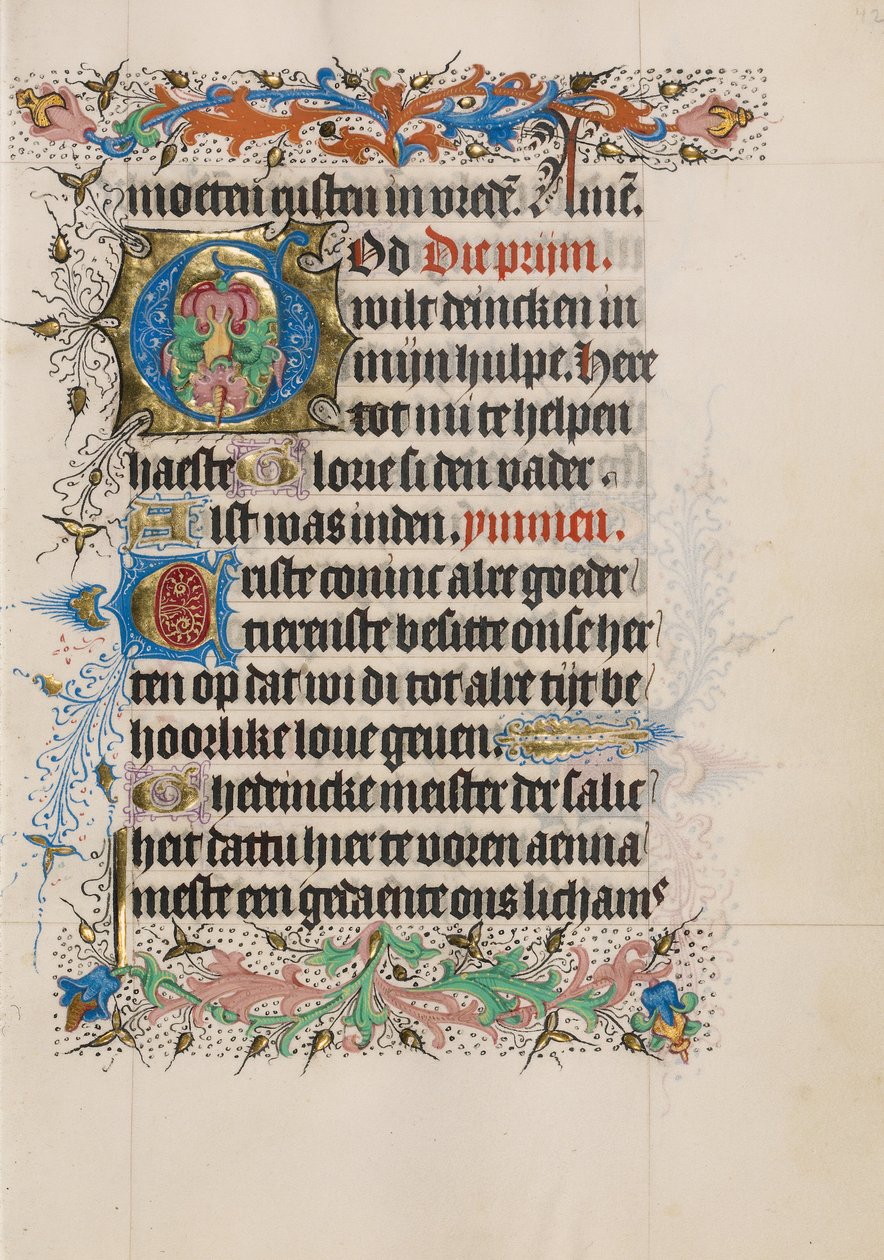 42
moeten rusten in vredē. Amē.
God Die prijm.
wilt deincken in
mijn hulpe. Here
tot mi te helpen
haeste Glorie si den vader .
Alst was inden. ymmen.
Criste coninc alre goeder
tierenste besitte onse her
ten op dat wi di tot alre tijt be
hoorlike loue geuen.
Ghedeincke meister der salic
heit dattu hier te voren aenna
meste een gedaente ons lichams